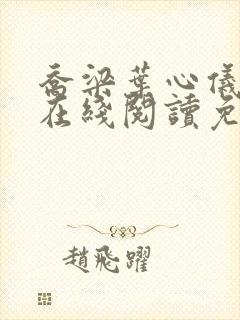 喬梁葉心儀
在綫閱讀免
趙飛躍